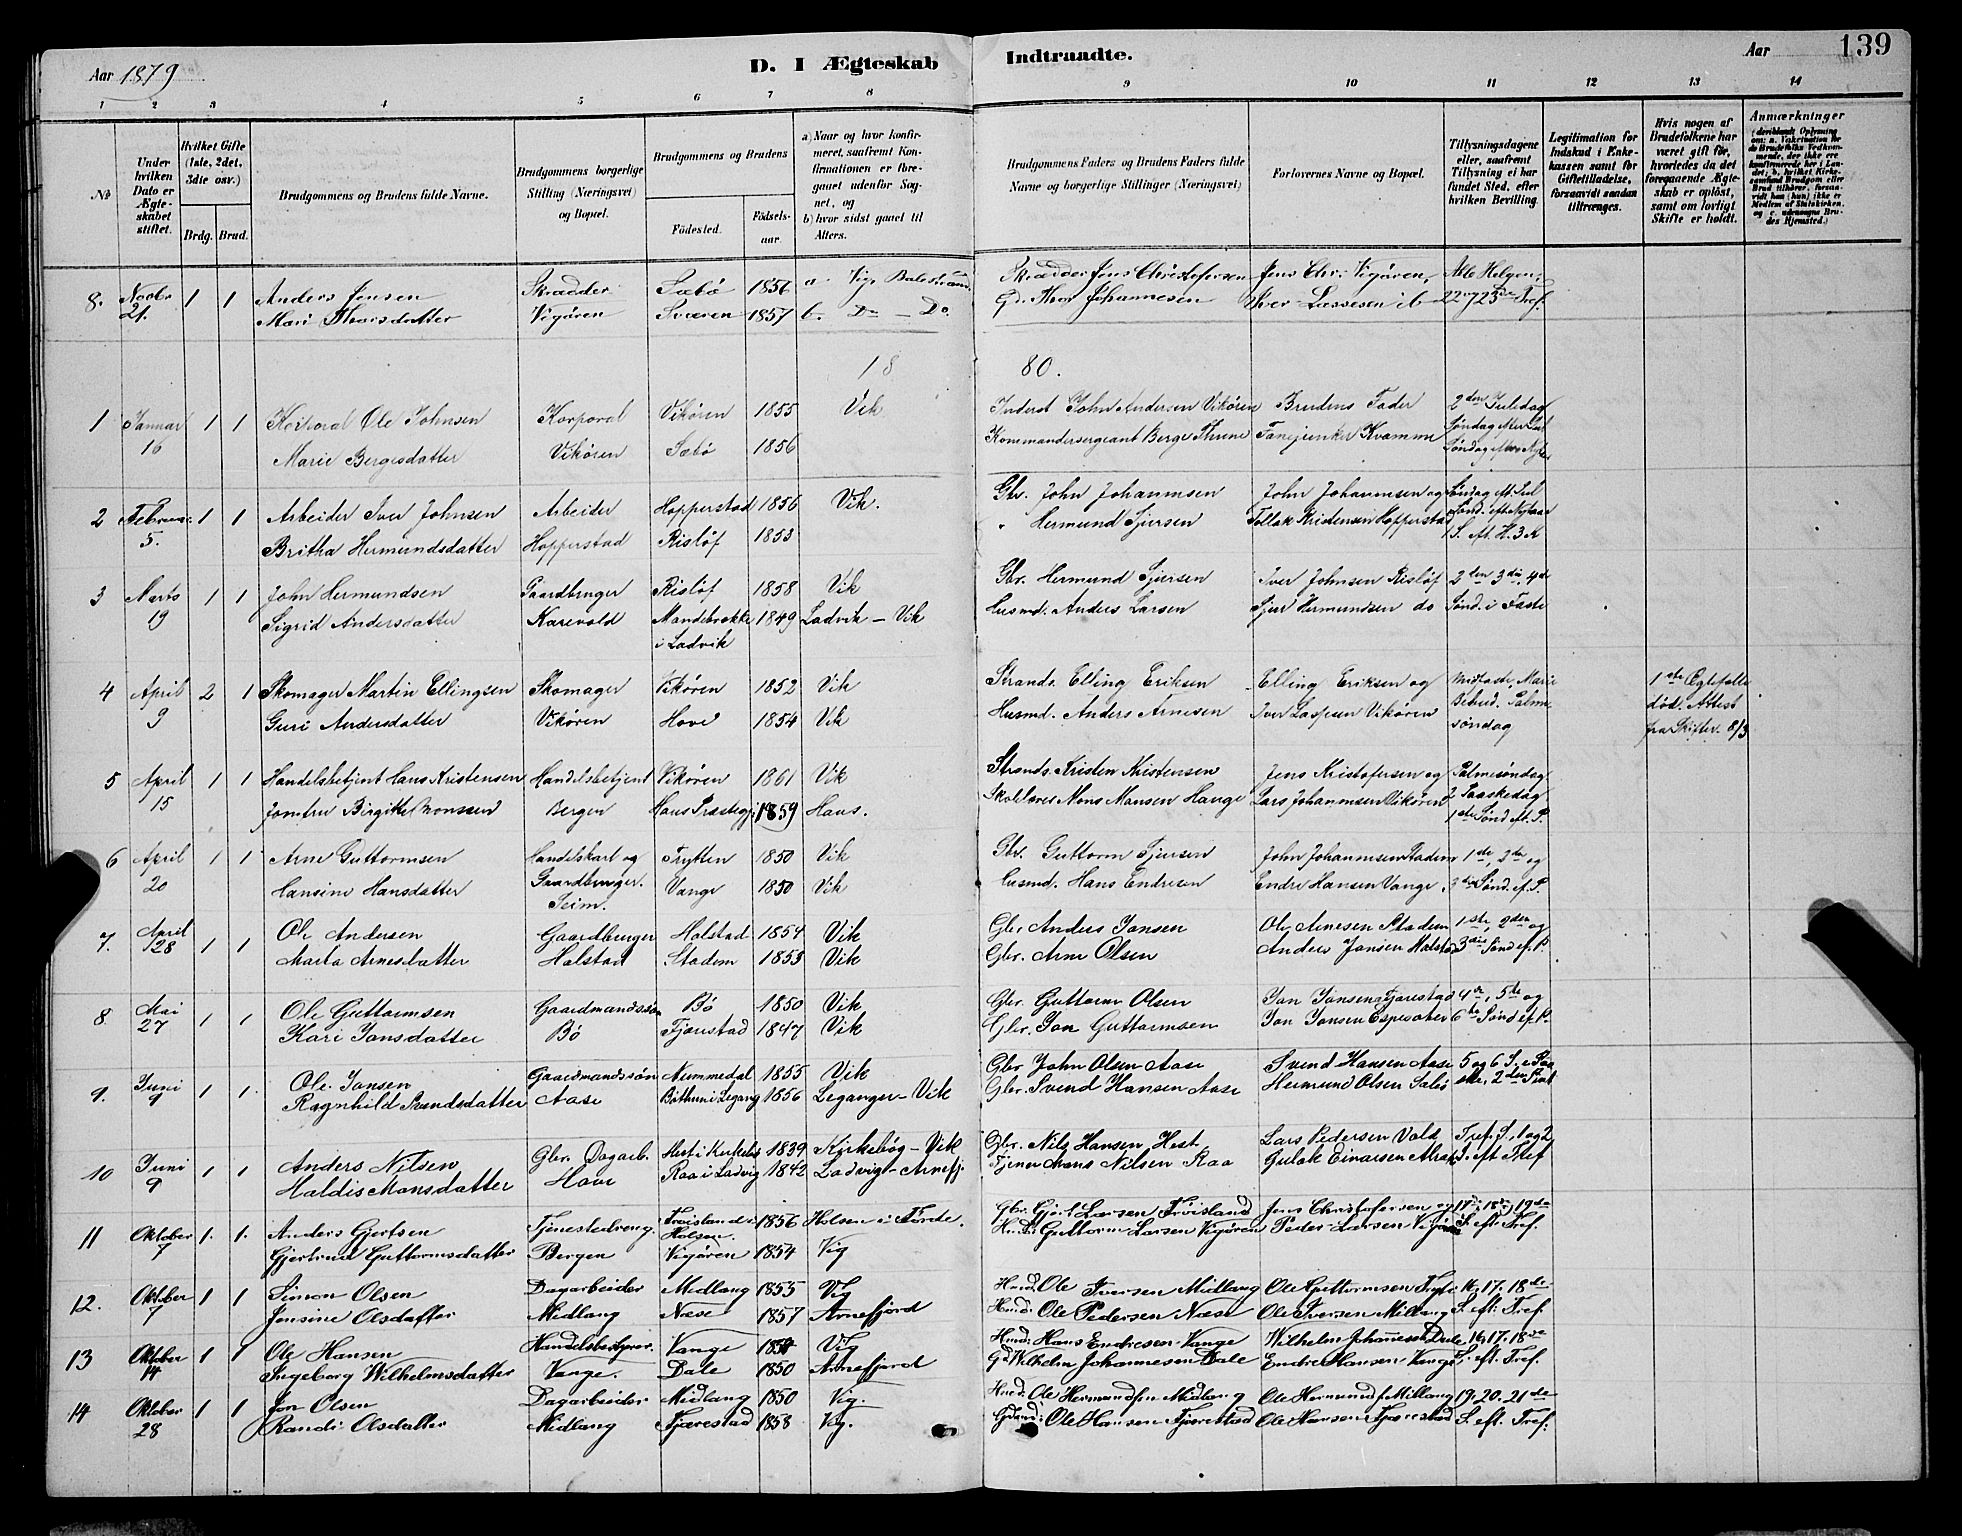 Aar 1879
D. I Ægteskab Indtraadte.
Aar 139
1 2 3 4 5 6 7 8 9 10 11 12 13 14
No
Under hvilken Dato er Ægteskabet stiftet.
Hvilket Gifte (1ste, 2det, 3die osv.)
Brdg. Brud.
Brudgommens og Brudens fulde Navne.
Brudgommens borgerlige Stilling (Næringsvei) og Bopæl.
Brudgommens og Brudens
Födested. Födselsaar.
a) Naar og hvor konfirmeret, saafremt Konfirmationen er foregaaet udenfor Sognet, og
b) hvor sidst gaaet til Alters.
Brudgommens Faders og Brudens Faders fulde Navne og borgerlige Stillinger (Næringsvei)
Forlovernes Navne og Bopæl.
Tillysningsdagene eller, saafremt Tillysning ei har fundet Sted, efter hvilken Bevilling.
Legitimation for Indskud i Enkekassen samt for Giftetilladelse, forsaavidt saadan tiltrænges.
Hvis nogen af Brudefolkene har været gift før, hvorledes da det foregaaende Ægteskab er opløst, samt om lovligt Skifte er holdt.
Anmærkninger
8. Novbr 1 1 Anders Jensen Skrædder Sæbö 1856 a. Vig, Balestrand Skrædder Jens Christofersen Jens Chr. Vigören, Alle Helgen,
21. Mari Thorsdatter Vigören Sværen 1857 b. Do — Do. Gd. Thor Johannesen Iver Lassesen ib 22 og 23de Tref.
18 80.
1 Januar 1 1 Korporal Ole Johnsen Korporal Vikören 1855 Vik Inderst John Andersen Vikören Brudens Fader 2den Juledag
16 Marie Bergesdatter Vikören Sæbö 1856 Kommandersergeant Berge Thrune Fanejunker Kvamme Söndag efter Jul
Söndag efter Nytaar
2 Februar 1 1 Arbeider Iver Johnsen Arbeider Hopperstad 1856 Vik. Gbr. John Johannesen John Johannesen og Söndag eft. Jul
5. Britha Hermundsdatter Hopperstad Rislöf 1853 " Hermund Sjursen Tollak Kristensen Hopperstad Sönd. eft. Nytaar
1 S. eft. H. 3 K
3 Marts 1 1 John Hermundsen Gaardbruger Rislöf 1858 Vik Gbr. Hermund Sjursen Iver Johnsen Rislöf 2den 3die, 4de
19 Sigrid Andersdatter Karevold Mandebrekke 1849 Ladvik — Vik Husmd. Anders Larsen Sjur Hermundsen do Sönd. i Faste
i Ladvik
4 April 2 1 Skomager Martin Ellingsen Skomager Vikören 1852 Vik Strands. Elling Eriksen Elling Eriksen og Midfaste, Marie 1ste Ægtefælle
9 Guri Andersdatter Vikören Hove 1854 Vik Husmd. Anders Arnesen Iver Lassesen Vikören Bebud. Palme död. Attest
söndag fra Skifter. 8/3
5 April 1 1 Handelsbetjent Hans Kristensen Handelsbetjent Vikören 1861 Vik Strands. Kristen Kristensen Jens Kristofersen og Palmesöndag
15 Jomfru Birgithe Monssen Bergen Haus Præstegj. 1859 Haus. Skolelærer Mons Monsen Hauge Lars Johannesen Vikören 2 Paaskedag
1ste Sönd eft. P.
6 April 1 1 Arne Guttormsen Handelskarl og Trytten 1850 Vik Gbr. Guttorm Sjursen John Johannesen Stadem 1ste, 2den og
20 Hansine Hansdatter Gaardbruger. Vange 1850 Vik Husmd. Hans Endresen Endre Hansen Vange, 3die Sönd. ef. P.
Seim.
7. April 1 1 Ole Andersen Gaardbruger Holstad 1854 Vik Gbr Anders Jonsen Ole Arnesen Stadem 1ste, 2den og
28 Marta Arnesdatter Holstad Stadem 1853 Vik Gbr. Arne Olsen Anders Jonsen Holstad 3die Sönd ef. P.
8. Mai 1 1 Ole Guttormsen Gaardmandssön Bö 1850 Vik Gbr. Guttorm Olsen Jon Jonsen Fjærestad 4de, 5te og
27 Kari Jonsdatter Bö Fjærestad 1847 Vik Gbr. Jon Guttormsen Jon Jonsen 6te Sönd ef. P.
9. Juni 1 1 Ole Jonsen Gaardmandssön Nummedal 1855 Vik Gbr John Olsen Aase Svend Hansen Aase 5 og 6 S. e Paa
9 Ragnhild Svendsdatter Aase i Legang 1856 Leganger — Vik Gbr. Svend Hansen Aase Hermund Olsen Sæbö ske, 2den Pint
10 Juni 1 1 Anders Nilsen Gbr. Dagarb. Hest i Kirkebö 1839 Kirkebög — Vik Gbr. Nils Hansen Hest Lars Pedersen Vold Tref. S. 1 og 2
9 Haldis Monsdatter Hove Raa i Ladvig 1842 Ladvigs — Arnefj. Tjener Mons Nilsen Raa Gulak Einarsen S. eft Tref
11 Oktober 1. 1. Anders Gjertsen Tjenestedreng. Fröisland i 1856 Holsen i Förde. Gbr. Gjert Larsen Fröisland Jens Christofersen og 17de, 18de, 19de
7 Gjertrud Guttormsdatter Bergen Holsen. Vigören 1854 Vig Guttorm Larsen Vigören Peder Larsen Vigören S. eft. Tref.
12. Oktober 1 1 Simon Olsen Dagarbeider Midlang 1855 Vig Husmd. Ole Iversen Midlang Ole Guttormsen 16, 17, 18de
7 Jensine Olsdatter Midlang Næse 1857 Arnefjord Husmd. Ole Pedersen Næse Ole Iversen Midlang S. eft. Tref.
13 Oktober 1 1 Ole Hansen Handelsbestyrer. Vange 1850 Vig Husmd. Hans Endresen Vange Wilhelm Johannesen Dale 16, 17, 18de
14 Ingeborg Wilhelmsdatter Vange. Dale 1850 Arnefjord Gd Wilhelm Johannesen Dale Endre Hansen Vange S. eft. Tref.
14 Oktober 1 1 Jon Olsen Dagarbeider Midlang 1850 Vig. Husmd. Ole Hermundsen Midlang Ole Hermunds. Midlang 19, 20, 21de
28 Randi Olsdatter Midlang Fjærestad 1858 Vig. Gdmd: Ole Hansen Fjærestad Ole Hansen Fjærestad S. eft. Tref.